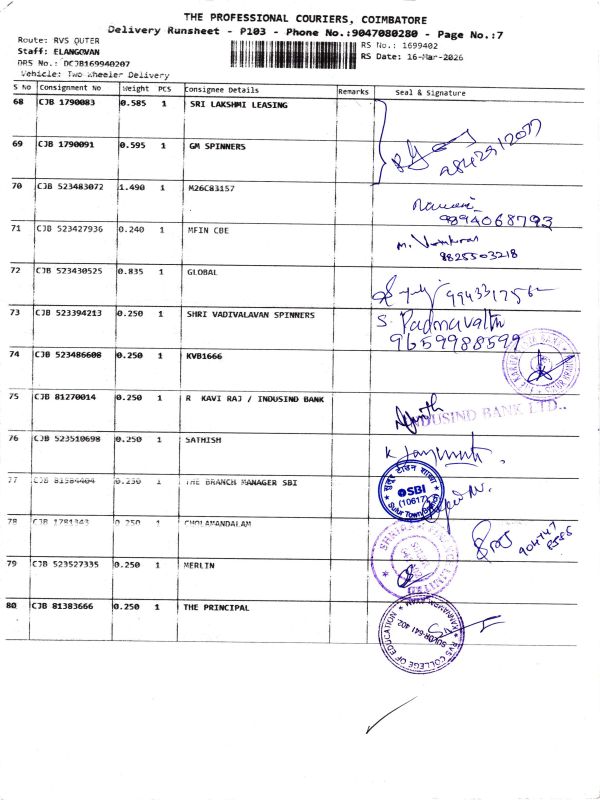 THE PROFESSIONAL COURIERS, COIMBATORE
Delivery Runsheet - P103 - Phone No.:9047080280 - Page No.:7
Route: RVS OUTER
RS No.: 1699402
Staff: ELANGOVAN
RS Date: 16-Mar-2026
DRS No.: DCJB169940207
Vehicle: Two Wheeler Delivery
S No Consignment No Weight PCS Consignee Details Remarks Seal & Signature
68 CJB 1790083 0.585 1 SRI LAKSHMI LEASING
69 CJB 1790091 0.595 1 GM SPINNERS
9842912077
70 CJB 523483072 1.490 1 M26C83157
9894068793
71 CJB 523427936 0.240 1 MFIN CBE
9825503218
72 CJB 523430525 0.835 1 GLOBAL
73 CJB 523394213 0.250 1 SHRI VADIVALAVAN SPINNERS
S. Padmavathi
9659988599
74 CJB 523486608 0.250 1 KVB1666
75 CJB 81270014 0.250 1 R KAVI RAJ / INDUSIND BANK
INDUSIND BANK LTD.
76 CJB 523510698 0.250 1 SATHISH
77 CJB 81584404 0.250 1 THE BRANCH MANAGER SBI
SBI
(10617)
Sulur Town Branch
78 CJB 1781343 0.250 1 CHOLAMANDALAM
79 CJB 523527335 0.250 1 MERLIN
80 CJB 81383666 0.250 1 THE PRINCIPAL
RVS COLLEGE OF EDUCATION
SULUR-641 402